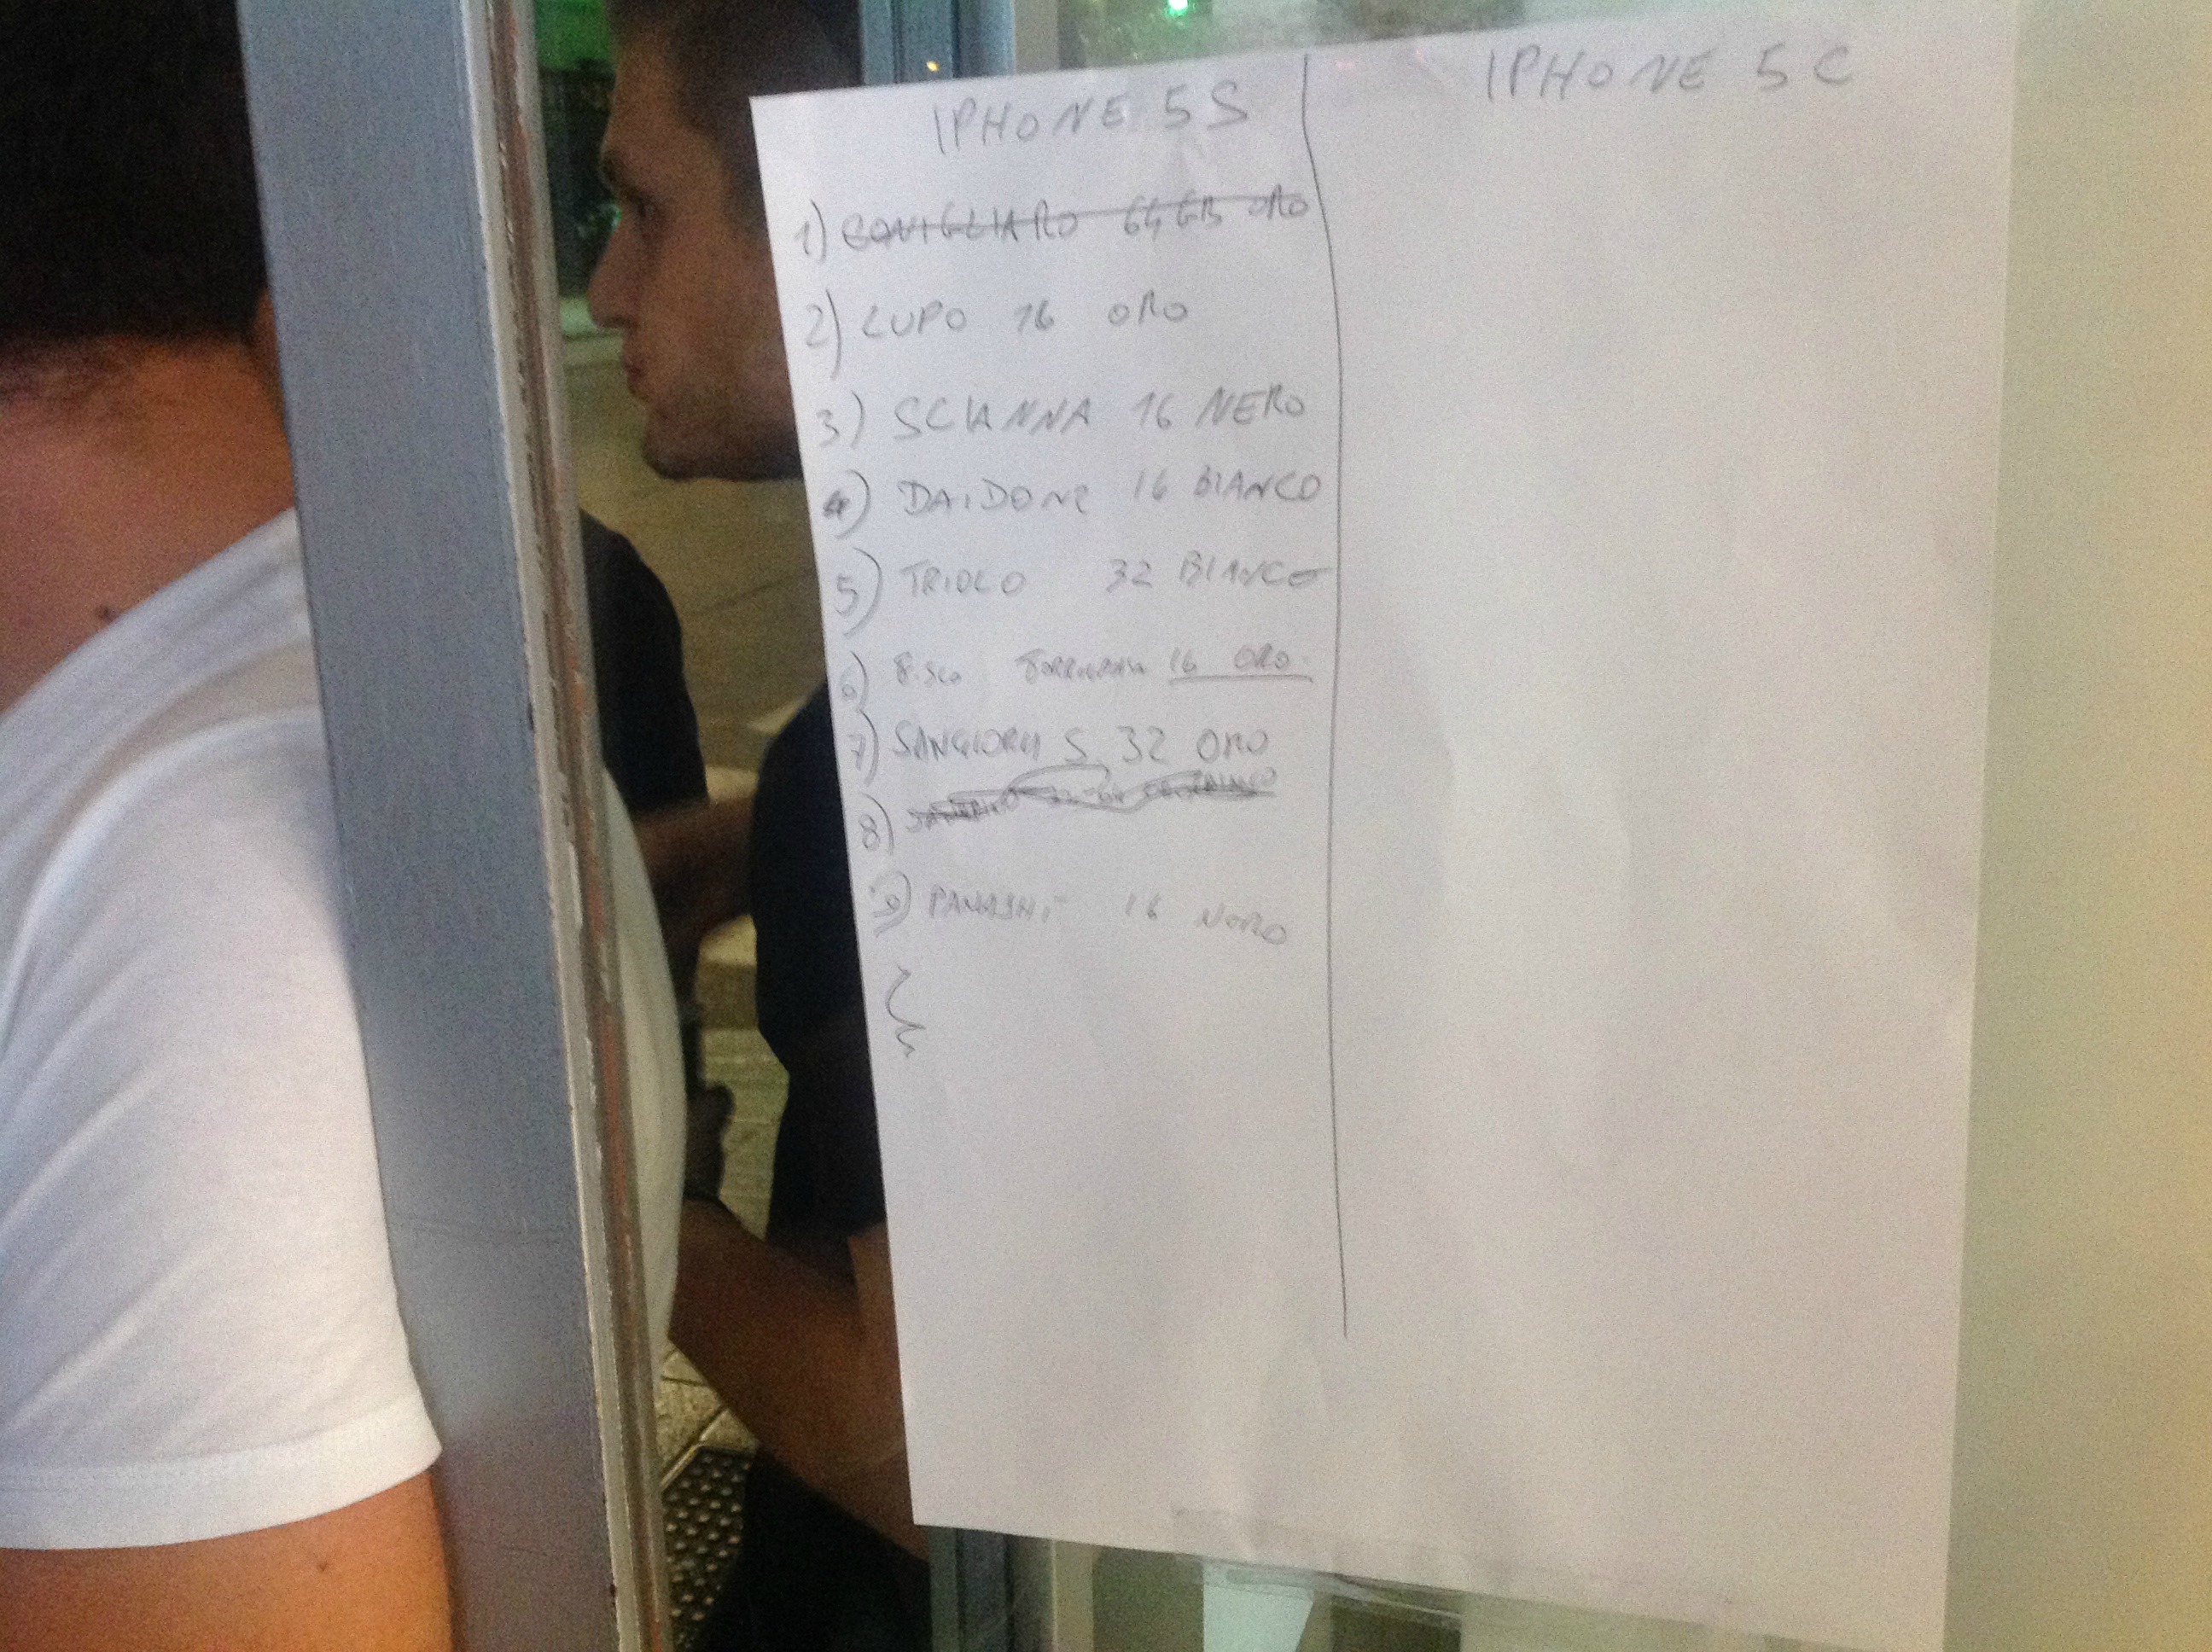 IPHONE 5S
IPHONE 5C
1) CONIGLIARO 64GB ORO
2) LUPO 16 ORO
3) SCIANNA 16 NERO
4) DAIDONE 16 BIANCO
5) TRIOLO 32 BIANCO
6) 16 ORO
7) SANGIORGI S. 32 ORO
8)
9) 16 NERO